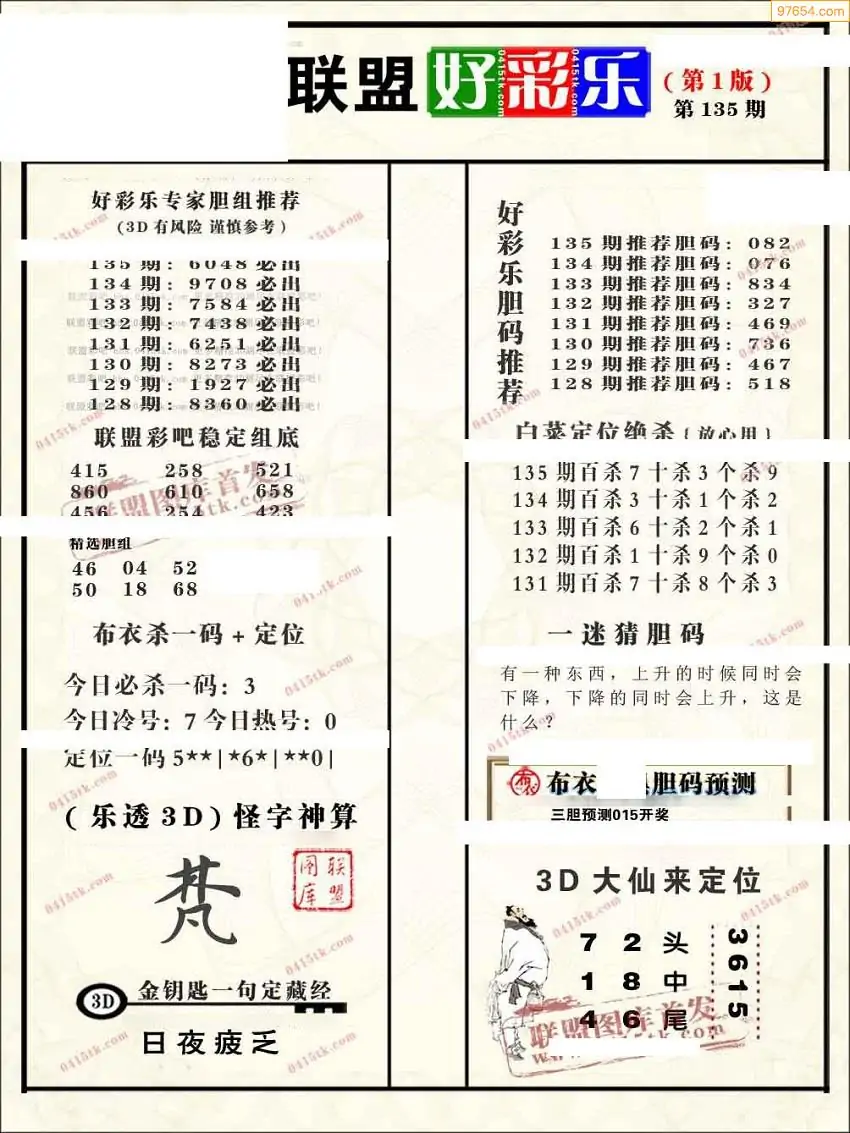 97654.com
联盟好彩乐
0415tk.com 0415tk.com 0415tk.com
(第1版)
第135期
好彩乐专家胆组推荐
(3D有风险 谨慎参考)
135期: 6048必出
134期: 9708必出
133期: 7584必出
132期: 7438必出
131期: 6251必出
130期: 8273必出
129期: 1927必出
128期: 8360必出
联盟彩吧稳定组底
415 258 521
860 610 658
456 254 423
精选胆组
46 04 52
50 18 68
布衣杀一码+定位
今日必杀一码: 3
今日冷号: 7 今日热号: 0
定位一码5**|*6*|**0|
(乐透3D)怪字神算
梵
联盟图库
3D 金钥匙一句定藏经
日夜疲乏
好彩乐胆码推荐
135期推荐胆码: 082
134期推荐胆码: 076
133期推荐胆码: 834
132期推荐胆码: 327
131期推荐胆码: 469
130期推荐胆码: 736
129期推荐胆码: 467
128期推荐胆码: 518
白菜定位绝杀{放心用}
135期百杀7十杀3个杀9
134期百杀3十杀1个杀2
133期百杀6十杀2个杀1
132期百杀1十杀9个杀0
131期百杀7十杀8个杀3
一迷猜胆码
有一种东西，上升的时候同时会
下降，下降的同时会上升，这是
什么?
布衣 胆码预测
三胆预测015开奖
3D大仙来定位
7 2 头
1 8 中
4 6 尾
3615
联盟图库首发
0415tk.com